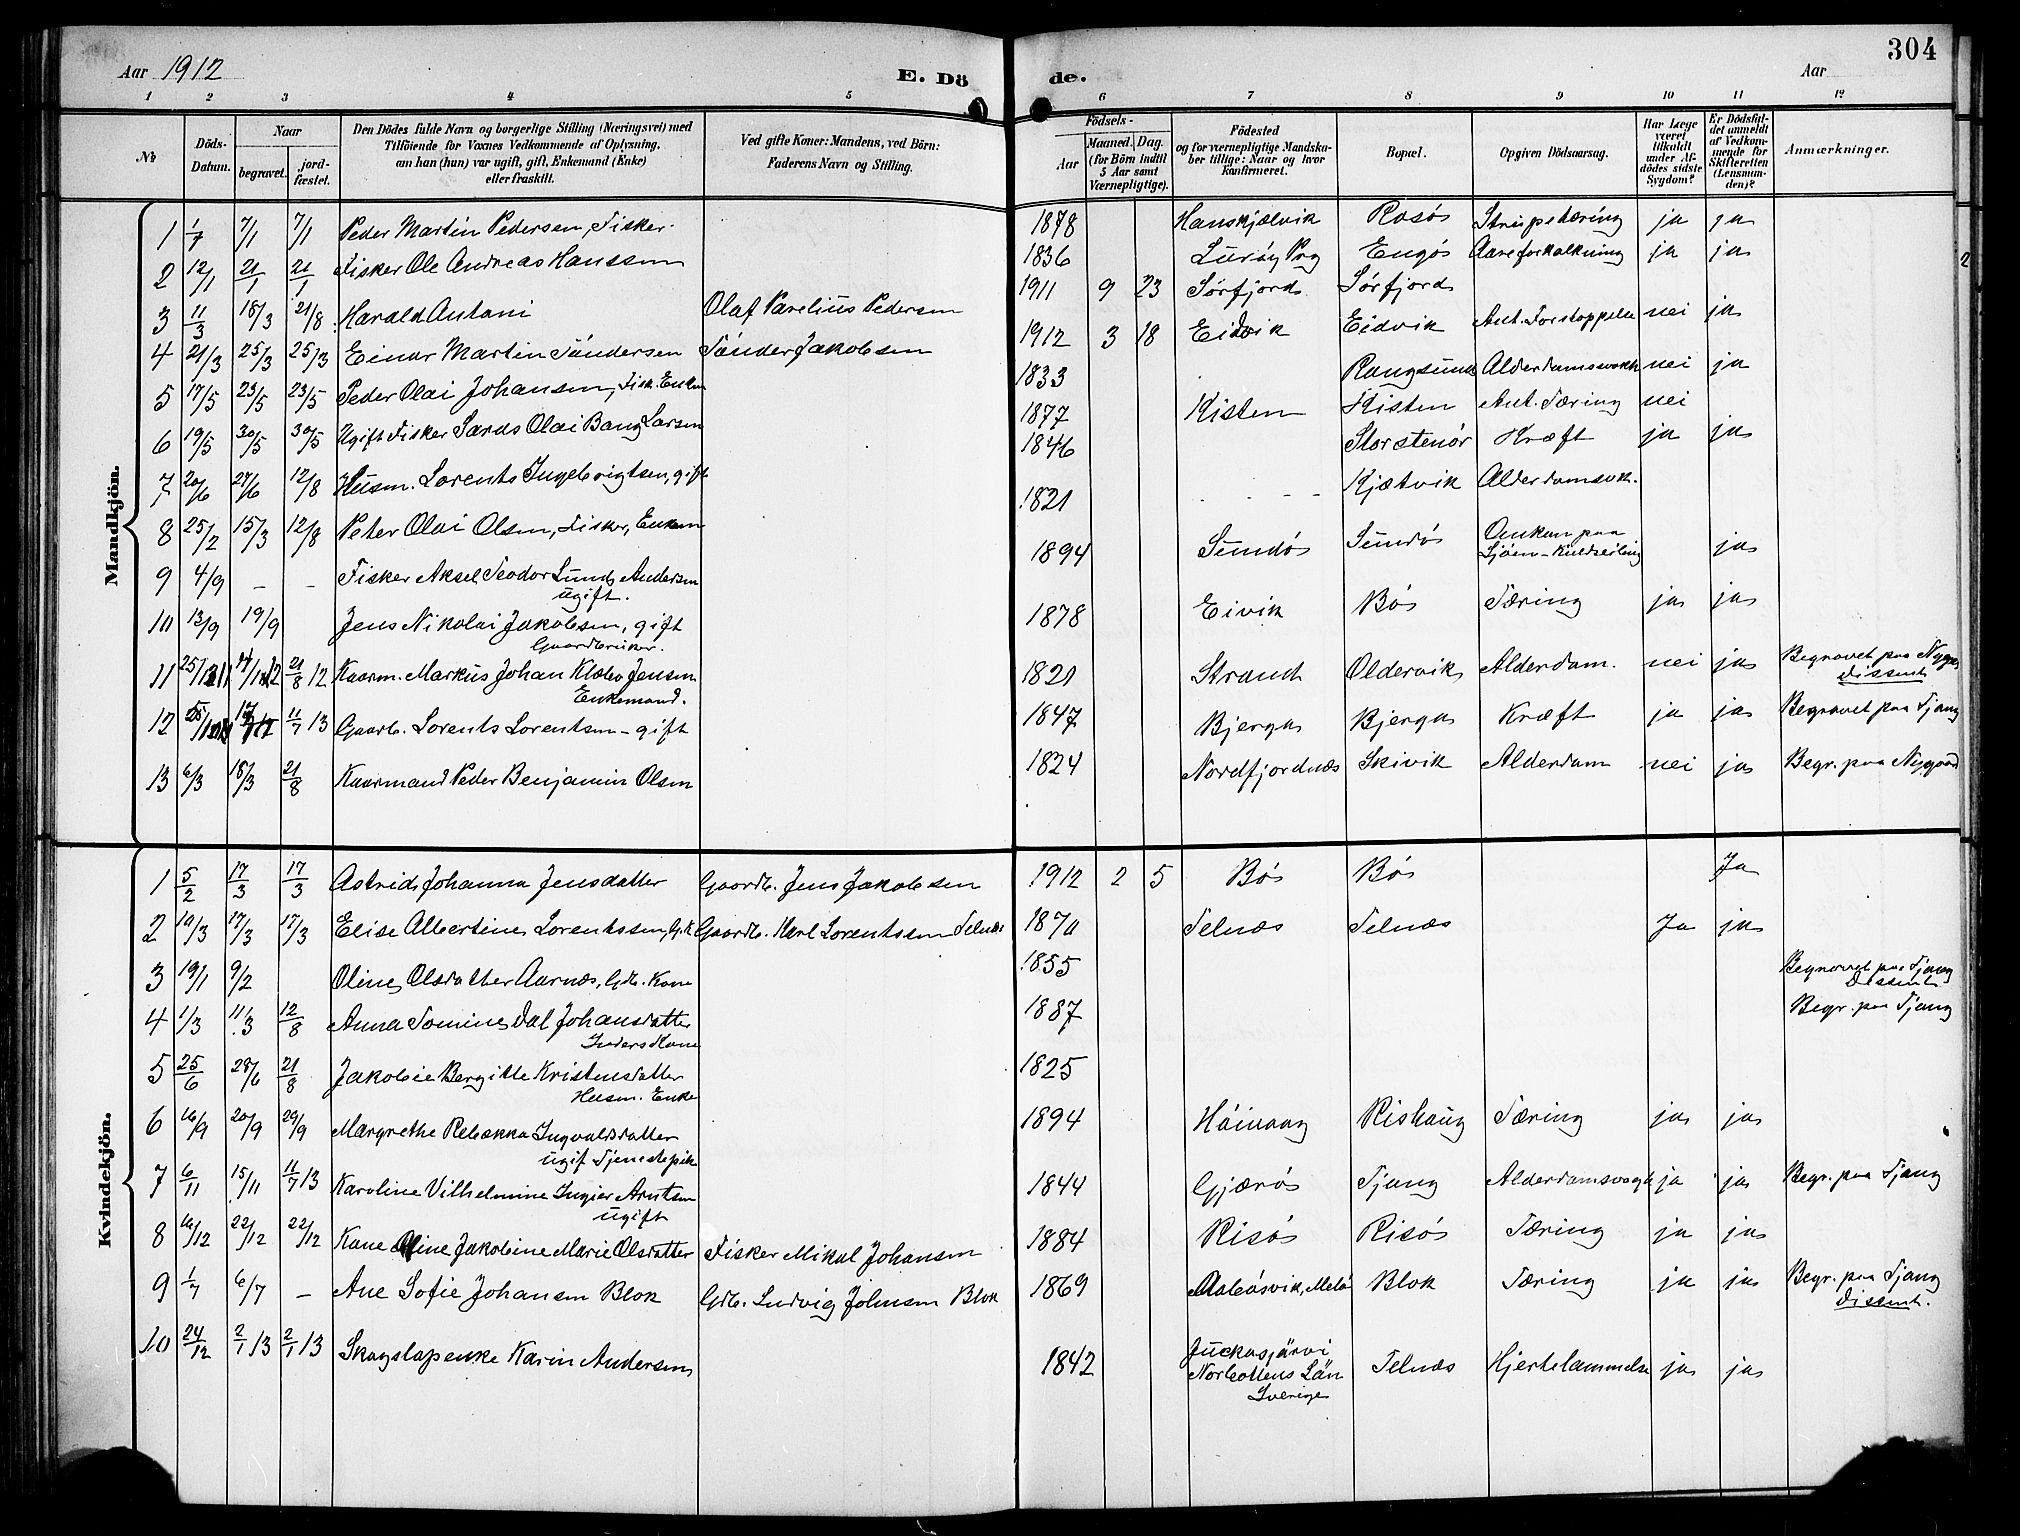 Aar 1912
E. Dö
de.
Aar
304
1 2 3 4 5 6 7 8 9 10 11 12
No
Döds-Datum.
Naar
begravet.
jord-fæstet.
Den Dödes fulde Navn og borgerlige Stilling (Næringsvei) med
Tilföiende for Voxnes Vedkommende af Oplysning,
om han (hun) var ugift, gift, Enkemand (Enke)
eller fraskilt.
Ved gifte Koner: Mandens, ved Börn:
Faderens Navn og Stilling.
Födsels-
Aar
Maaned. Dag.
(for Börn indtil
5 Aar samt
Værnepligtige).
Födested
og for værnepligtige Mandska-
ber tillige: Naar og hvor
konfirmeret.
Bopæl.
Opgiven Dödsaarsag.
Har Læge
været
tilkaldt
under Af-
dödes sidste
Sygdom?
Er Dödsfal-
det anmeldt
af Vedkom-
mende for
Skifteretten
(Lensman-
den)?
Anmærkninger.
Mandkjön.
1 1/7 7/1 7/1 Peder Martin Pedersen, Fisker. 1878 Hanskjælvik Rosös Strupetæring ja ja
2 12/1 21/1 21/1 Fisker Ole Andreas Hanssen 1836 Luröy Prg Engös Aareforkalkning ja ja
3 11/3 18/3 21/8 Harald Antoni Olaf Parelius Pedersen 1911 9 23 Sörfjord Sörfjord
4 21/3 25/3 25/3 Einar Martin Töndersen Tönder Jakobsen 1912 3 18 Eidvik Eidvik Ant. Forstoppelse nei ja
5 17/5 23/5 23/5 Peder Olai Johansen, Fisk. Enkem 1833 Rangsund Alderdamssvakh nei ja
6 19/5 30/5 30/5 Ugift Fisker Olai Bang Larsen 1877 Kisten Kisten Ant. Tæring nei
7 20/6 27/6 12/8 Husm. Lorents Ingebrigtsen, gift 1846 Storstenör Kræft ja ja
8 25/2 15/3 12/8 Peter Olai Olsen, Fisker, Enkem 1821 Kjætvik Alderdamsvk.
9 4/9 – – Fisker Aksel Teodor Lund Andersen
ugift. 1894 Sundös Sundös Omkom paa
Sjöen – Kuldseiling ja
10 13/9 19/9 Jens Nikolai Jakobsen, gift
Gaardbruker. 1878 Eivik Bös Tæring ja ja
11 21/8 12 Kaarm. Markus Johan Klæbo Jensen
Enkemand. 1821 Strand Oldervik Alderdam. nei ja Begravet paa Nyga
dissent
12 11/7 13 Gaardb. Lorents Lorentsen – gift 1847 Bjerga Bjerga Kræft ja ja Begravet paa Tjang
13 6/3 18/3 21/8 Kaarmand Peder Benjamin Olsen 1824 Nordfjordnæs Skivik Alderdam nei ja Begr. paa Nygaard
Kvindekjön.
1 5/2 17/3 17/3 Astrid Johanna Jensdatter Gaardb. Jens Jakobsen 1912 2 5 Bös Bös Ja
2 10/3 17/3 17/3 Elise Albertine Lorentssen, G.K Gaardb. Karl Lorentssen Telnæs 1870 Telnæs Telnæs Ja ja
3 19/1 9/2 Oline Olsdatter Aarnæs, Gdb. Kone 1855 Begravet paa Tjang
Dissent
4 1/3 11/3 12/8 Anna Tomine Dal Johansdatter
Inders Kone 1887 Begr. paa Tjang
5 25/6 28/6 21/8 Jakobie Bergitte Kristensdatter
Husm. Enke 1825
6 16/9 20/9 29/9 Margrethe Rebekka Ingvaldsdatter
ugif Tjenestepik 1894 Höivaag Rishaug Tæring ja ja
7 6/11 15/11 11/7 13 Karoline Vilhelmine Ingier Arntsen
ugift 1844 Gjærös Tjang Alderdamsvagh ja ja Begr. paa Tjang
8 16/12 22/12 22/12 Kone Oline Jakobine Marie Olsdatter Fisker Mikal Johansen 1884 Risös Risös Tæring ja ja
9 1/7 6/7 – Ane Sofie Johansen Blok Gdb. Ludvig Johnsen Blok 1869 Aaboösvik, Melö Blok Tæring ja ja Begr. paa Tjang
dissent.
10 24/12 2/1 13 2/1 13 Skogslapenke Karin Andersen 1842 Juckasjärvi
Norbottens Län
Sverige Telnæs Hjertelammelse ja ja